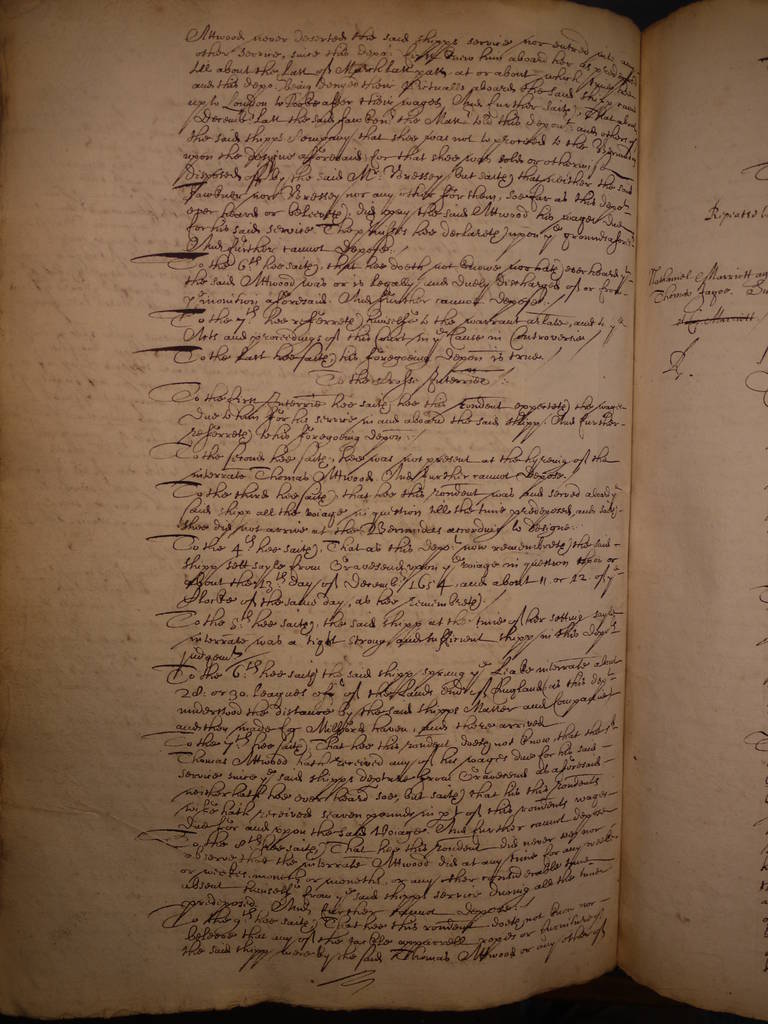 Attwood never deserted the said shipps service nor entred into any
other service, since this depo:t first knew him aboard her as predeposed
till about the last of March last past, at or about which tyme hee
and this depo:t being denyed their Victualls aboard the said shipp came
up to London to looke after their wages, And further saith, That about
December last the said ffawkner the Ma:r told this depon:t and others of
the said shipps Company that shee was not to proceed to the Bermudas
upon the designe afforesaid, for that shee was sold or otherwise
disposed of by the said M:r Bressey, but saith that neither the said
ffawkner nor Bressey nor any other for them, soe far as this depo:t
ever heard or beleeveth, did pay the said Attwood his wages due
for his said service The premisses hee declareth upon y:e grounds aforesd
And further cannot depose./
To the 6:th hee saith, that hee doeth not knowe nor hath ever heard y:t
the said Attwood was or is legally and duely discharged of or from
y:e monition afforesaid. And further cannot depose./
To the 7:th hee referreth himselfe to the warrant arlate, and to y:e
Acts and proceedings of this Court in y:e Cause in Controversie
To the last hee saith his foregoing depon is true./
To the Crosse Interries./
To the first Interrie hee saith, hee this rondent expecteth the wages
due to him for his service in and aboard the said shipp. And further
referreth to his foregoing depon:/
To the second hee saith, hee was not present at the hyreing of the
interrate Thomas Attwood And further cannot depose.
To the third hee saith, that hee this rondent was and served aboard y:e
said shipp all the voiage in question till the time predeposed, and saith
shee did not arrive at the Bermudas according to designe.
To the 4:th hee saith, That as this depo:t now remembreth the said
shipp sett sayle from Gravesend upon y:e voiage in question upon or
about the 13:th day of Decemb:r 1654, and about 11 or 12 of y:e
Clocke of the same day, as hee remembreth./
To the 5:th hee saith, the said shipp at the time of her setting sayle
interrate was a tight strong, and sufficient shipp in this depo:ts
judgem:t
To the 6:th hee saith the said shipp sprung y:e Leake interrate about
28: or 30 leagues off of the Lands end of England, as this depo:t
understood the distance by the said shipps Master and Companie,
and then made for Milford haven, and there arrived
To the 7:th hee saith, That hee this rondent doeth not know, that the s:d
Thomas Attwood hath received any of his wages due for his said
service since y:e said shipps departure from Gravesend as aforesaid
neither hath hee ever heard soe, but saith that hee this rondents
wife hath received seaven pounds in p:t of this rondents wages
due for and upon the said Voiage And further cannot depose
To the 8:th hee saith, That hee this rondent did never see nor
observe that the interrate Attwood did at any time for any weeke
or weekes, month, or moneths, or any other considerable time
absent himself from y:e said shipps service during all the time
predeposed, And further cannot depose./
To the 9:th hee saith, That hee this rondent doeth not know nor
beleeve that any of the tackle apparrell ropes or furniture of
the said shipp were by the said Thomas Attwood or any other of
Repeated
Nathaniel Marriott
Thomas
Marriott